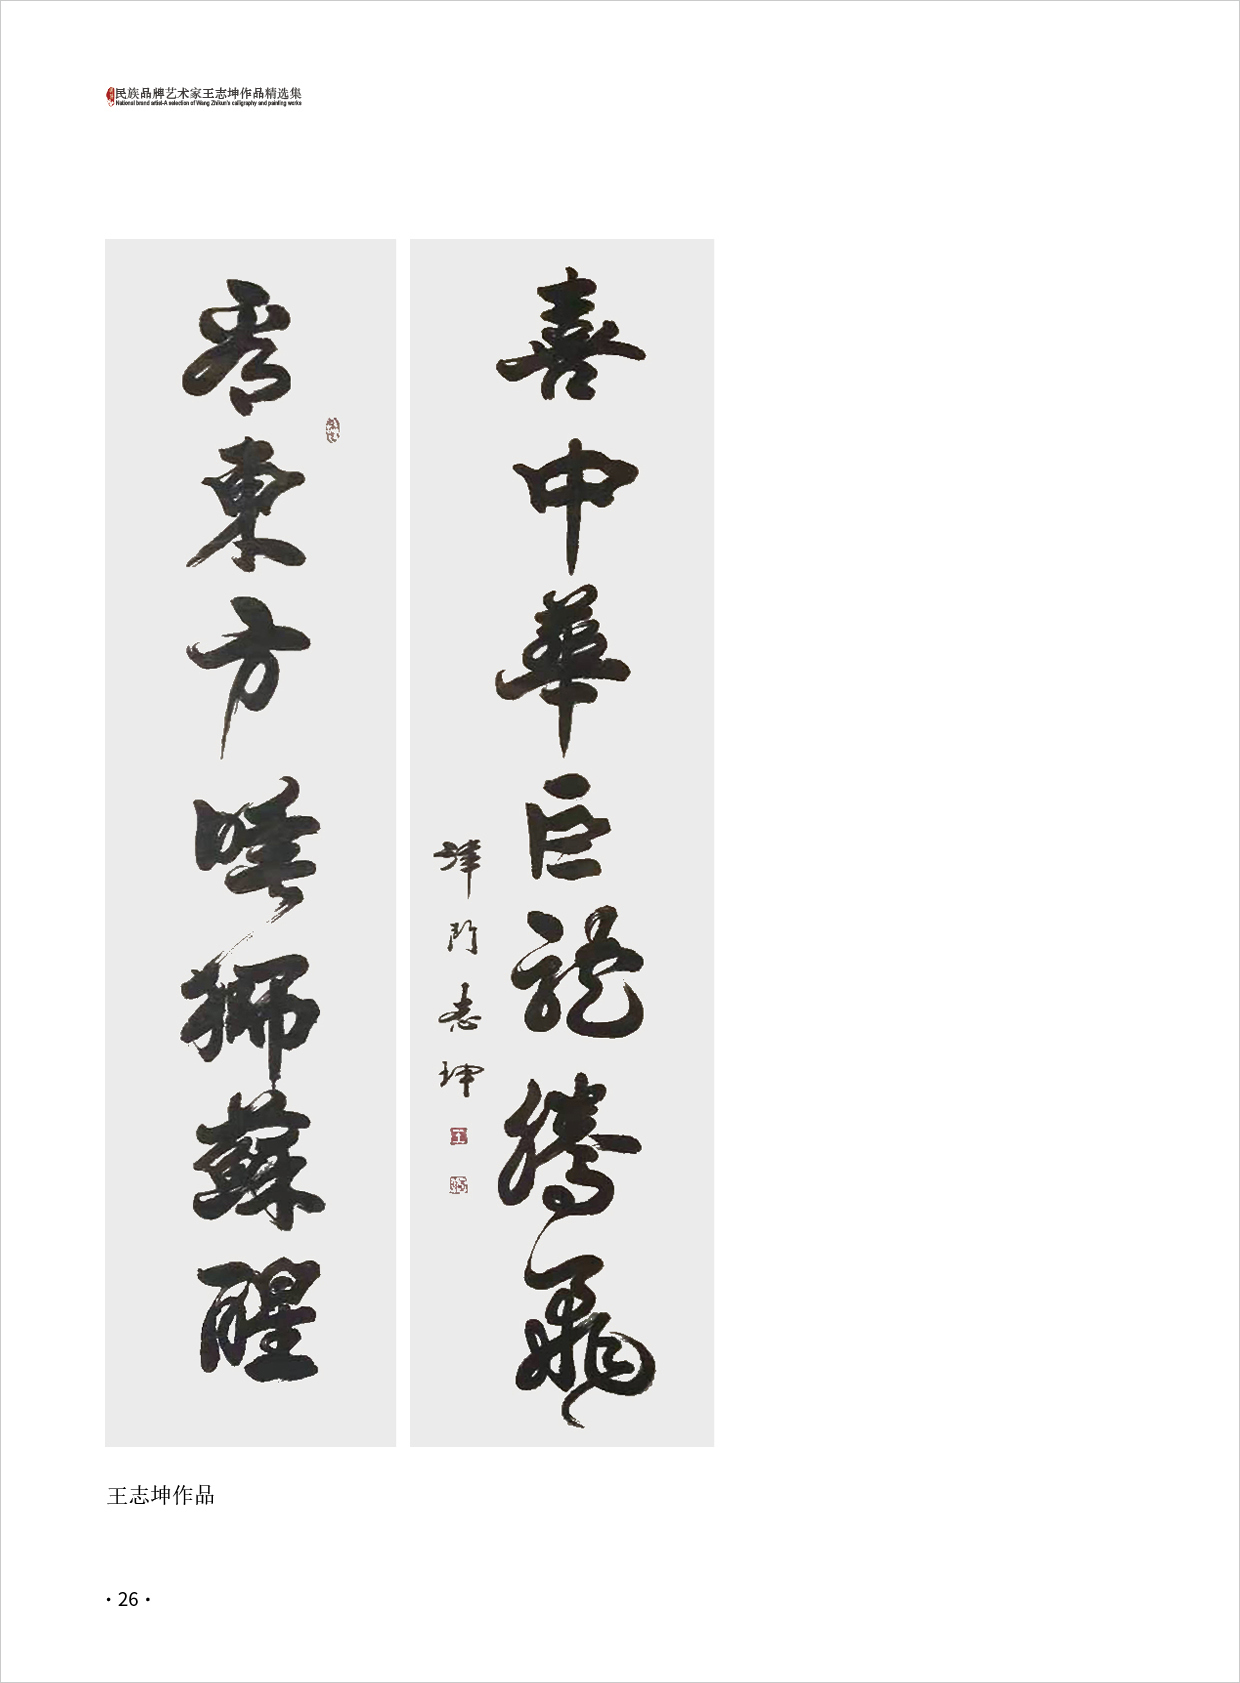 民族品牌艺术家王志坤作品精选集
National brand artist-A selection of Wang Zhikun's calligraphy and painting works
喜中華巨龍騰飛
津門志坤
王
看東方睡獅蘇醒
王志坤作品
·26·